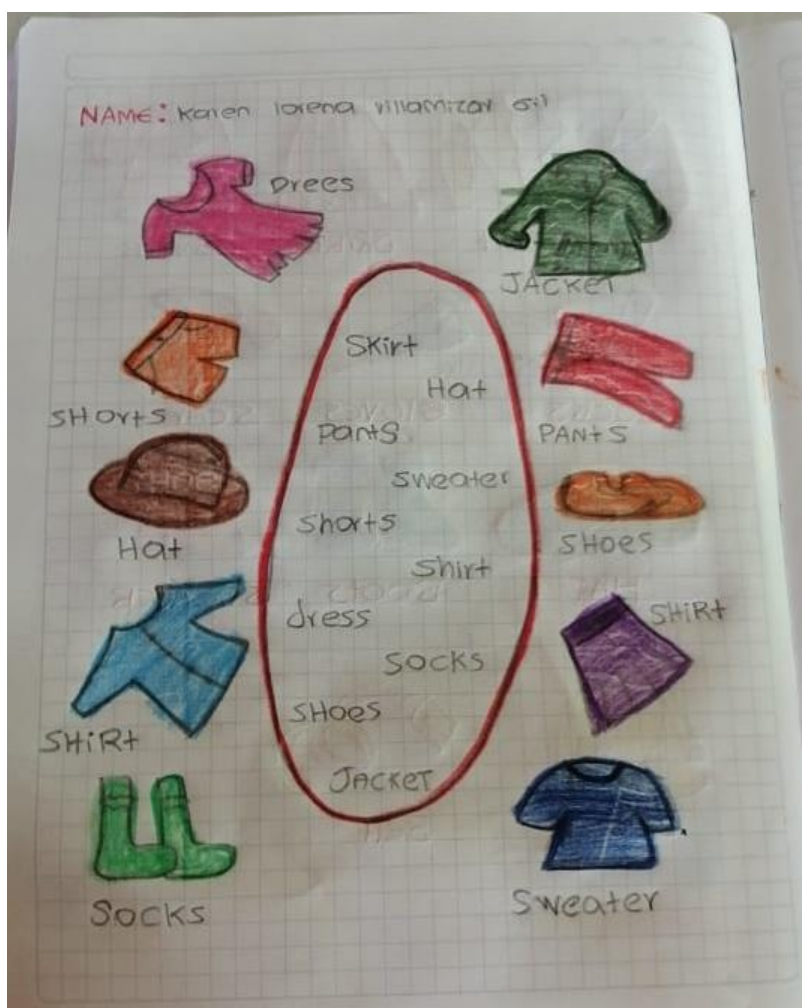 NAME: Karen lorena villamizar Gil
Drees
JACKET
SHorts
PANtS
Hat
SHOes
SHiRt
SHiRt
Socks
Sweater
SKirt
Hat
pants
sweater
shorts
shirt
dress
socks
SHoes
JACKET